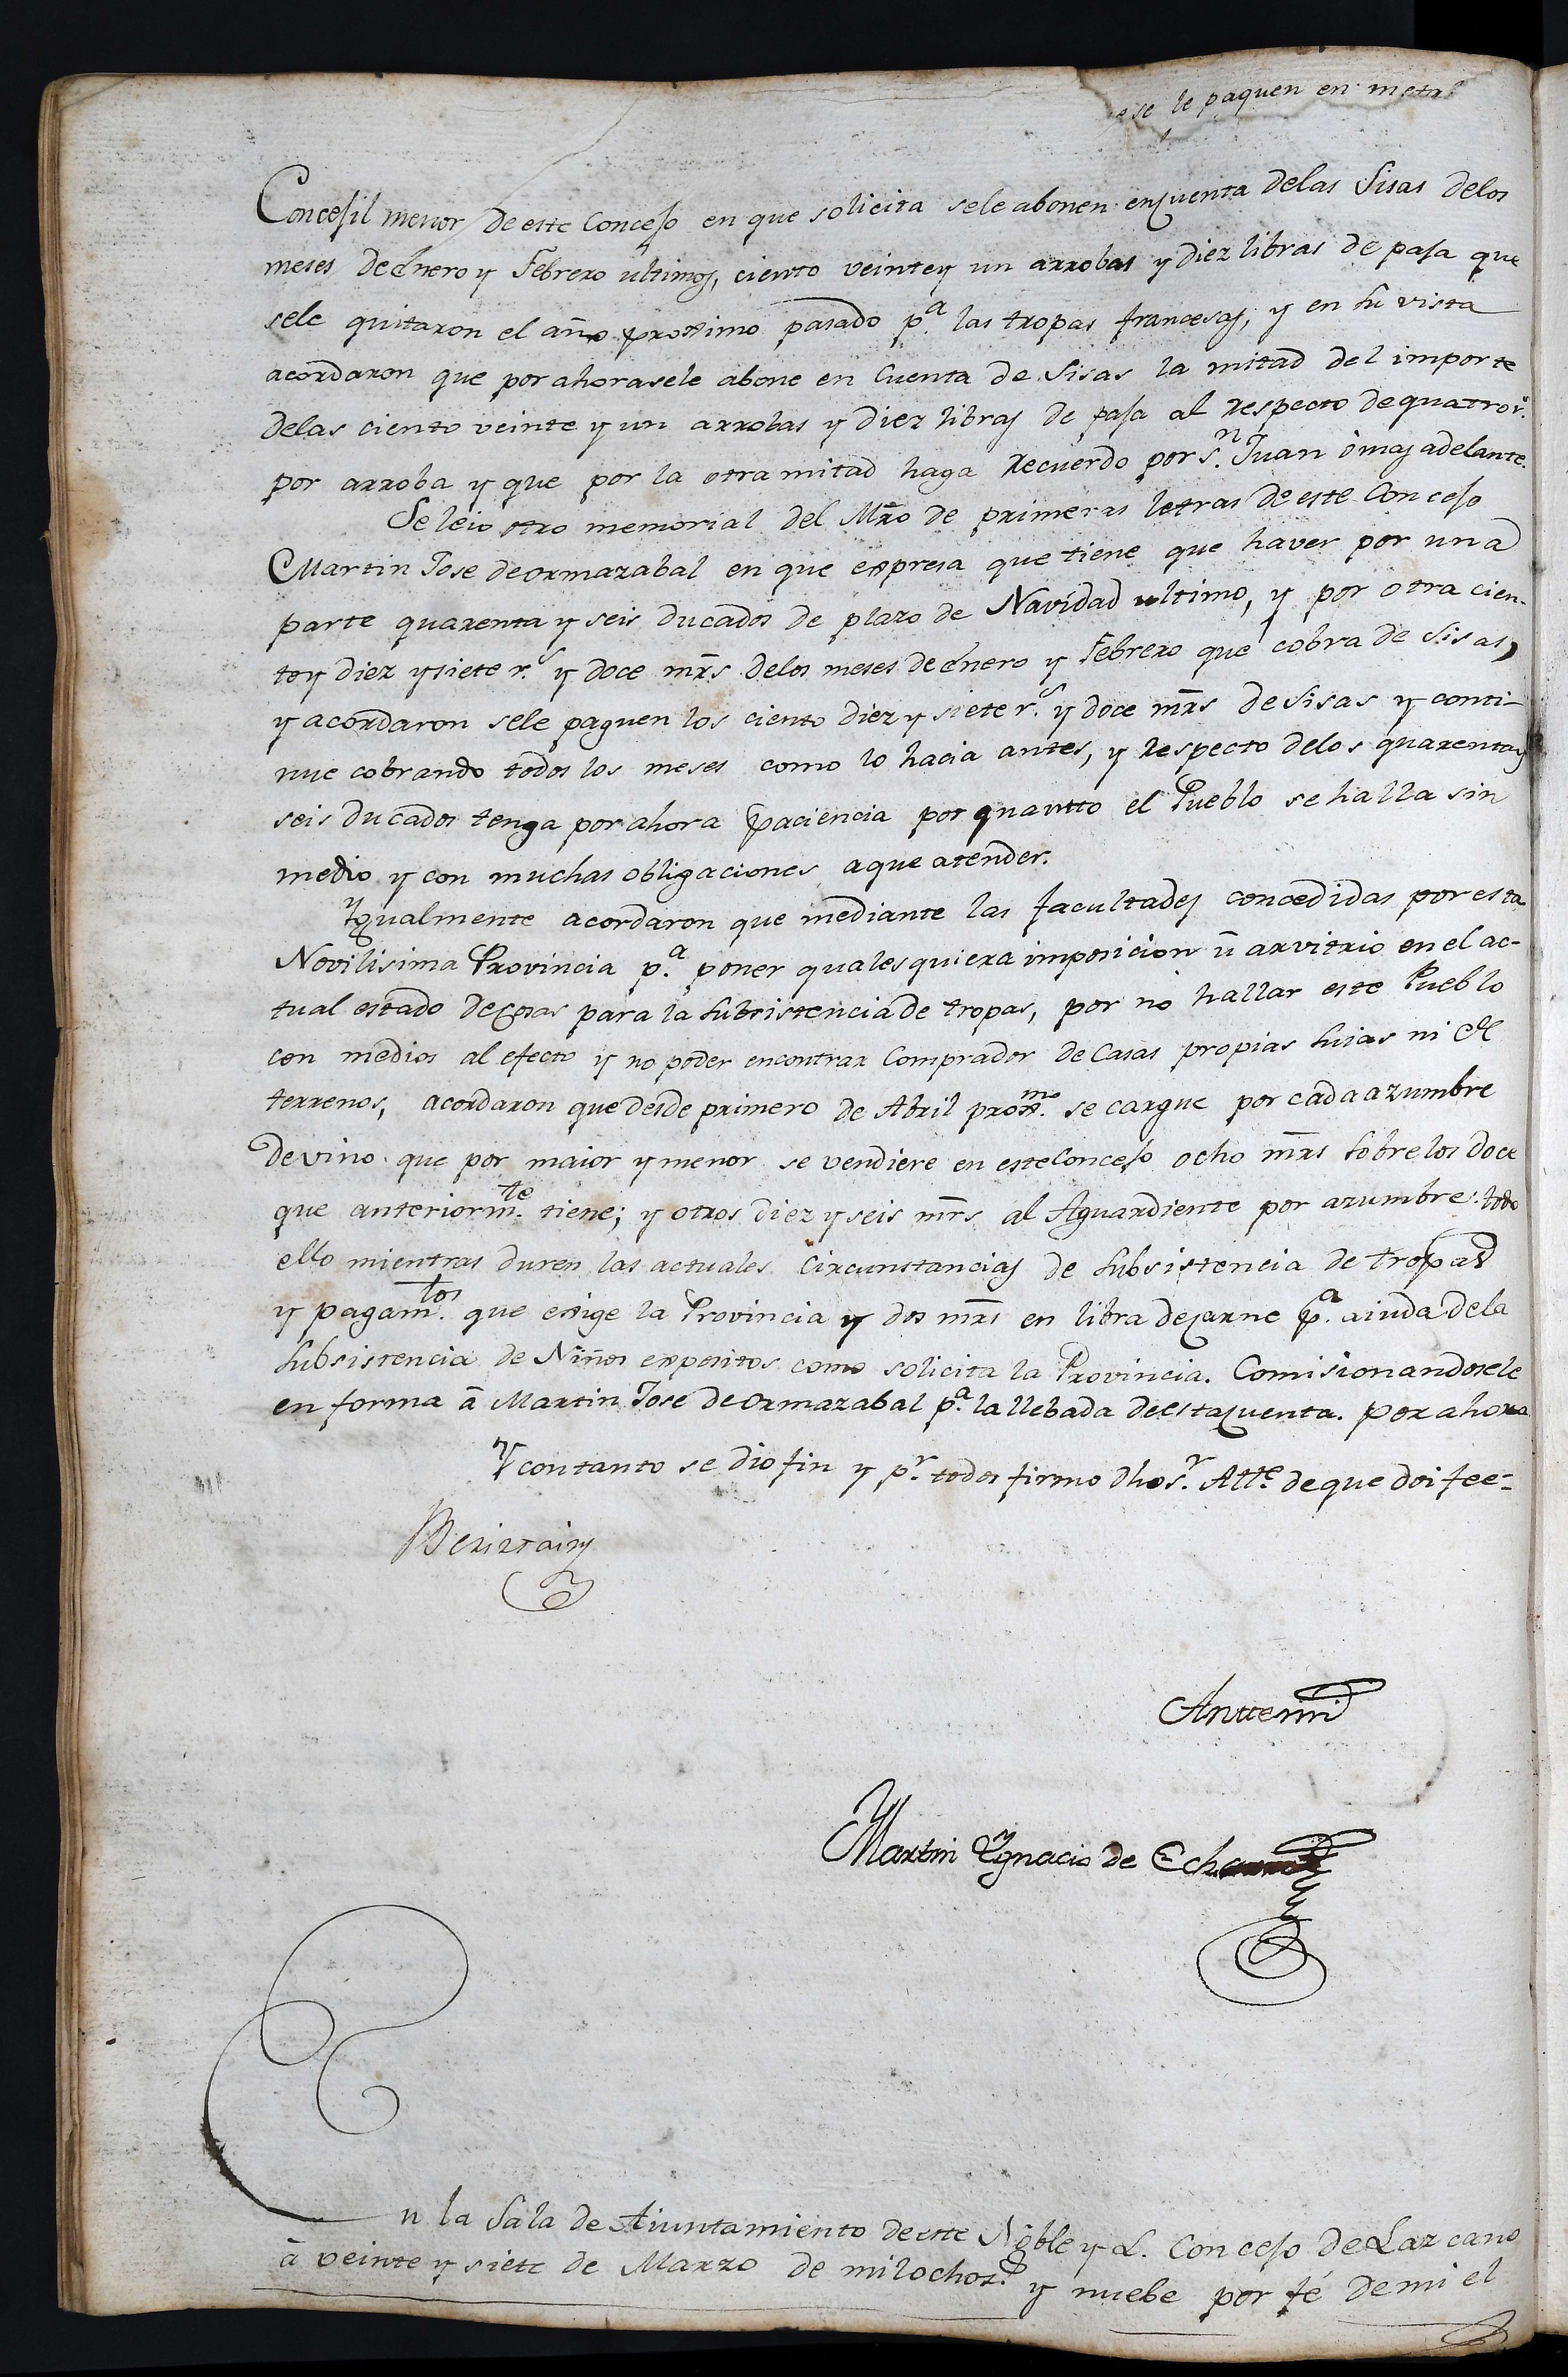 se le paguen en metal
Concejil menor de este Concejo en que solicita sele abonen encuenta delas Sisas delos
meses deEnero y Febrero ultimos, ciento veintey un arrobas y diez libras de paja que
sele quitaron el año proximo pasado p.ª las tropas francesas, y en su vista
acordaron que por ahorasele abone en Cuenta de Sisas la mitad del importe
delas ciento veinte y un arrobas y diez libras de paja al respecto de quatro r.ˢ
por arroba y que por la otra mitad haga recuerdo por S.ⁿ Juan ò mas adelante.
Se leio otro memorial del Mrõ de primeras letras de este Concejo
Martin Jose de Ormazabal en que expresa que tiene que haver por una
parte quarenta y seis ducados de plazo de Navidad ultimo, y por otra cien-
toy diez ysiete r.ˢ y doce mrs̃ delos meses deEnero y Febrero que cobra de Sisas,
y acordaron sele paguen los ciento diez y siete r.ˢ y doce mrs̃ de Sisas y conti-
nue cobrando todos los meses como lo hacia antes, y respecto delos quarentay
seis ducados tenga por ahora paciencia por quantto el Pueblo se halla sin
medio y con muchas obligaciones aque atender.
Ygualmente acordaron que mediante las facultades concedidas por esta
Novilisima Provincia p.ª poner qualesquiera imposicion ũ arvitrio en el ac-
tual estado decosas para la subsistencia de tropas, por no hallar este Pueblo
con medios al efecto y no poder encontrar Comprador de Casas propias suias ni de
terrenos, acordaron que desde primero de Abril prox.ᵐᵒ se cargue por cada azumbre
devino que por maior y menor se vendiere en este Concejo ocho mrs̃ sobre los doce
que anteriorm.ᵗᵉ tiene; y otros diez y seis mrs̃ al Aguardiente por azumbre: todo
ello mientras duren las actuales circunstancias de subsistencia de tropas
y pagam.ᵗᵒˢ que exige la Provincia y dos mrs̃ en libra decarne p.ª aiuda dela
subsistencia de Niños expositos como solicita la Provincia. Comisionandosele
en forma â Martin Jose de Ormazabal p.ª la llebada de esta cuenta. por ahora
Y contanto se dio fin y p.ʳ todos firmo dho s.ʳ Alt.ᵉ de que doi fee=
Beriztain
Antte mi
Martin Ygnacio de
En la Sala de Aiuntamiento de este Noble y L. Concejo de Lazcano
â veinte y siete de Marzo de milochoz.ˢ y nuebe por fé demi el